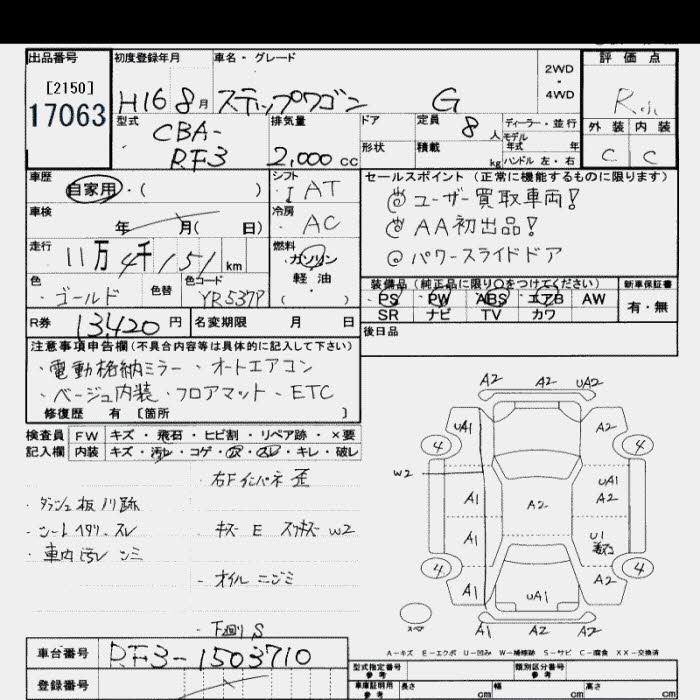 出品番号 初度登録年月 車名・グレード 2WD・4WD 評価点
[2150]
17063 H16 8月 ステップワゴン G
型式 CBA-RF3 排気量 2,000cc
ドア 定員 8人 ディーラー・並行
モデル年式 年
形状 積載 kg ハンドル 左・右
外装 内装
C C
車歴 自家用・( )
シフト IAT
セールスポイント(正常に機能するものに限ります)
ユーザー買取車両!
AA初出品!
パワースライドドア
車検 年 月( 日)
冷房 AC
走行 11万4千151km
燃料 ガソリン 軽油 ( )
装備品(純正品に限り○をつけてください) 新車保証書
PS PW ABS エアB AW 有・無
SR ナビ TV カワ
色 ゴールド 色替 色コード YR537P
R券 13,420円 名変期限 月 日
後日品
注意事項申告欄(不具合内容等は具体的に記入して下さい)
・電動格納ミラー・オートエアコン
・ベージュ内装・フロアマット・ETC
修復歴 有 [箇所 ]
検査員 FW キズ・飛石・ヒビ割・リペア跡・×要
記入欄 内装 キズ・汚レ・コゲ・穴・スレ・キレ・破レ
・右Fインパネ 歪
・ダッシュ板 ノリ跡
・シートヘタリ・スレ
・キズ E スリキズ W2
・車内汚レ シミ
・オイルニジミ
・下廻り S
A2 A2 UA2
UA1 A2
4 4
W2
A1 A2 UA1 A2
A1 U1
4 4
A1 UA1 A2
スペア
A1 A2 A2
A-キズ E-エクボ U-凹み W-補修跡 S-サビ C-腐食 XX-交換済
車台番号 RF3-1503710
型式指定番号 参考 類別区分番号 参考
登録番号
車庫証明用 参考 長さ cm 幅 cm 高さ cm